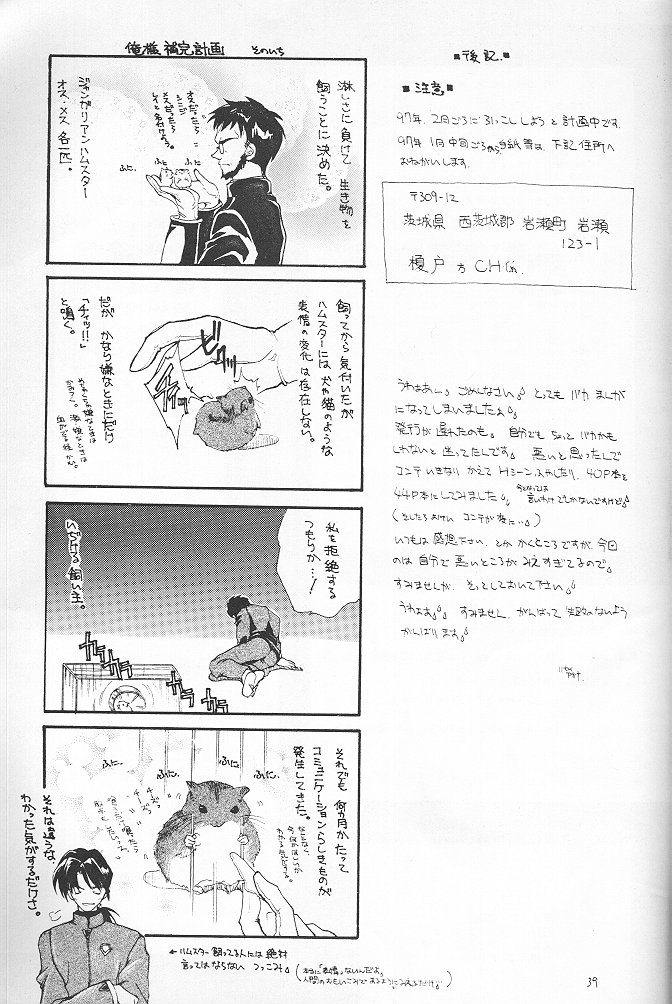 俺様補完計画 そのいち
淋しさに負けて 生き物を
飼うことに決めた。
オスだったら
シンジ
メスだったら
レイと名付けよう。
ふに
ふに
ふに
ジャンガリアンハムスター
オス・メス 各一匹。
飼ってから気付いたが
ハムスターには犬や猫のような
表情の変化は存在しない。
ビグッ
ビグッ
だが かなり嫌なときにだけ
「チィッ!!」
と鳴く。
私を拒絶する
つもりか…!
いじける飼い主。
ガラ
ガラ
ガラ
ガラ
それでも 何ヵ月かたって
コミュニケーションらしきものが
発生してきた。
ふに
ふに
ふに
ふに
それは違うな、
わかった気がするだけさ。
←ハムスター飼ってる人には絶対
言ってはならない つっこみ
(本当に「表情」ないんだよ。
人間のおもいこみで あるようにみえるだけ)
■後記.■
■注意■
97年.2月ごろにひっこししようと計画中です.
97年1月中旬ごろから手紙等は、下記住所へ
おねがいします.
〒309-12
茨城県 西茨城郡 岩瀬町 岩瀬
123-1
榎戸 方 CHIN.
うわぁあー。ごめんなさい。とってもバカまんが
になってしまいましたね。
発行が遅れたのも。自分でもちょっとバカかも
しれないと迷ってたんです。悪いと思ったんで
コンテいきなりかえてHシーンふやしたり、40P本を
44P本にしてみました。
今となっては
言いわけでしかないですけど。
(そしたらよけい コンテが変に…。)
いつもは感想下さい、とか かくところですが、今回
のは自分で悪いところがみえすぎてるので。
すみませんが、そっとしておいて下さい。
うわぁあ。すみません、がんばって失敗のないよう
がんばります。
39